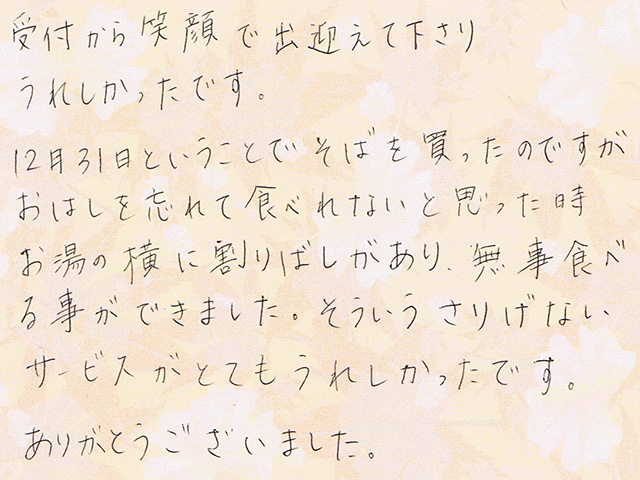 受付から笑顔で出迎えて下さり
うれしかったです。
12月31日ということでそばを買ったのですが
おはしを忘れて食べれないと思った時
お湯の横に割りばしがあり、無事食べ
る事ができました。そういうさりげない
サービスがとてもうれしかったです。
ありがとうございました。